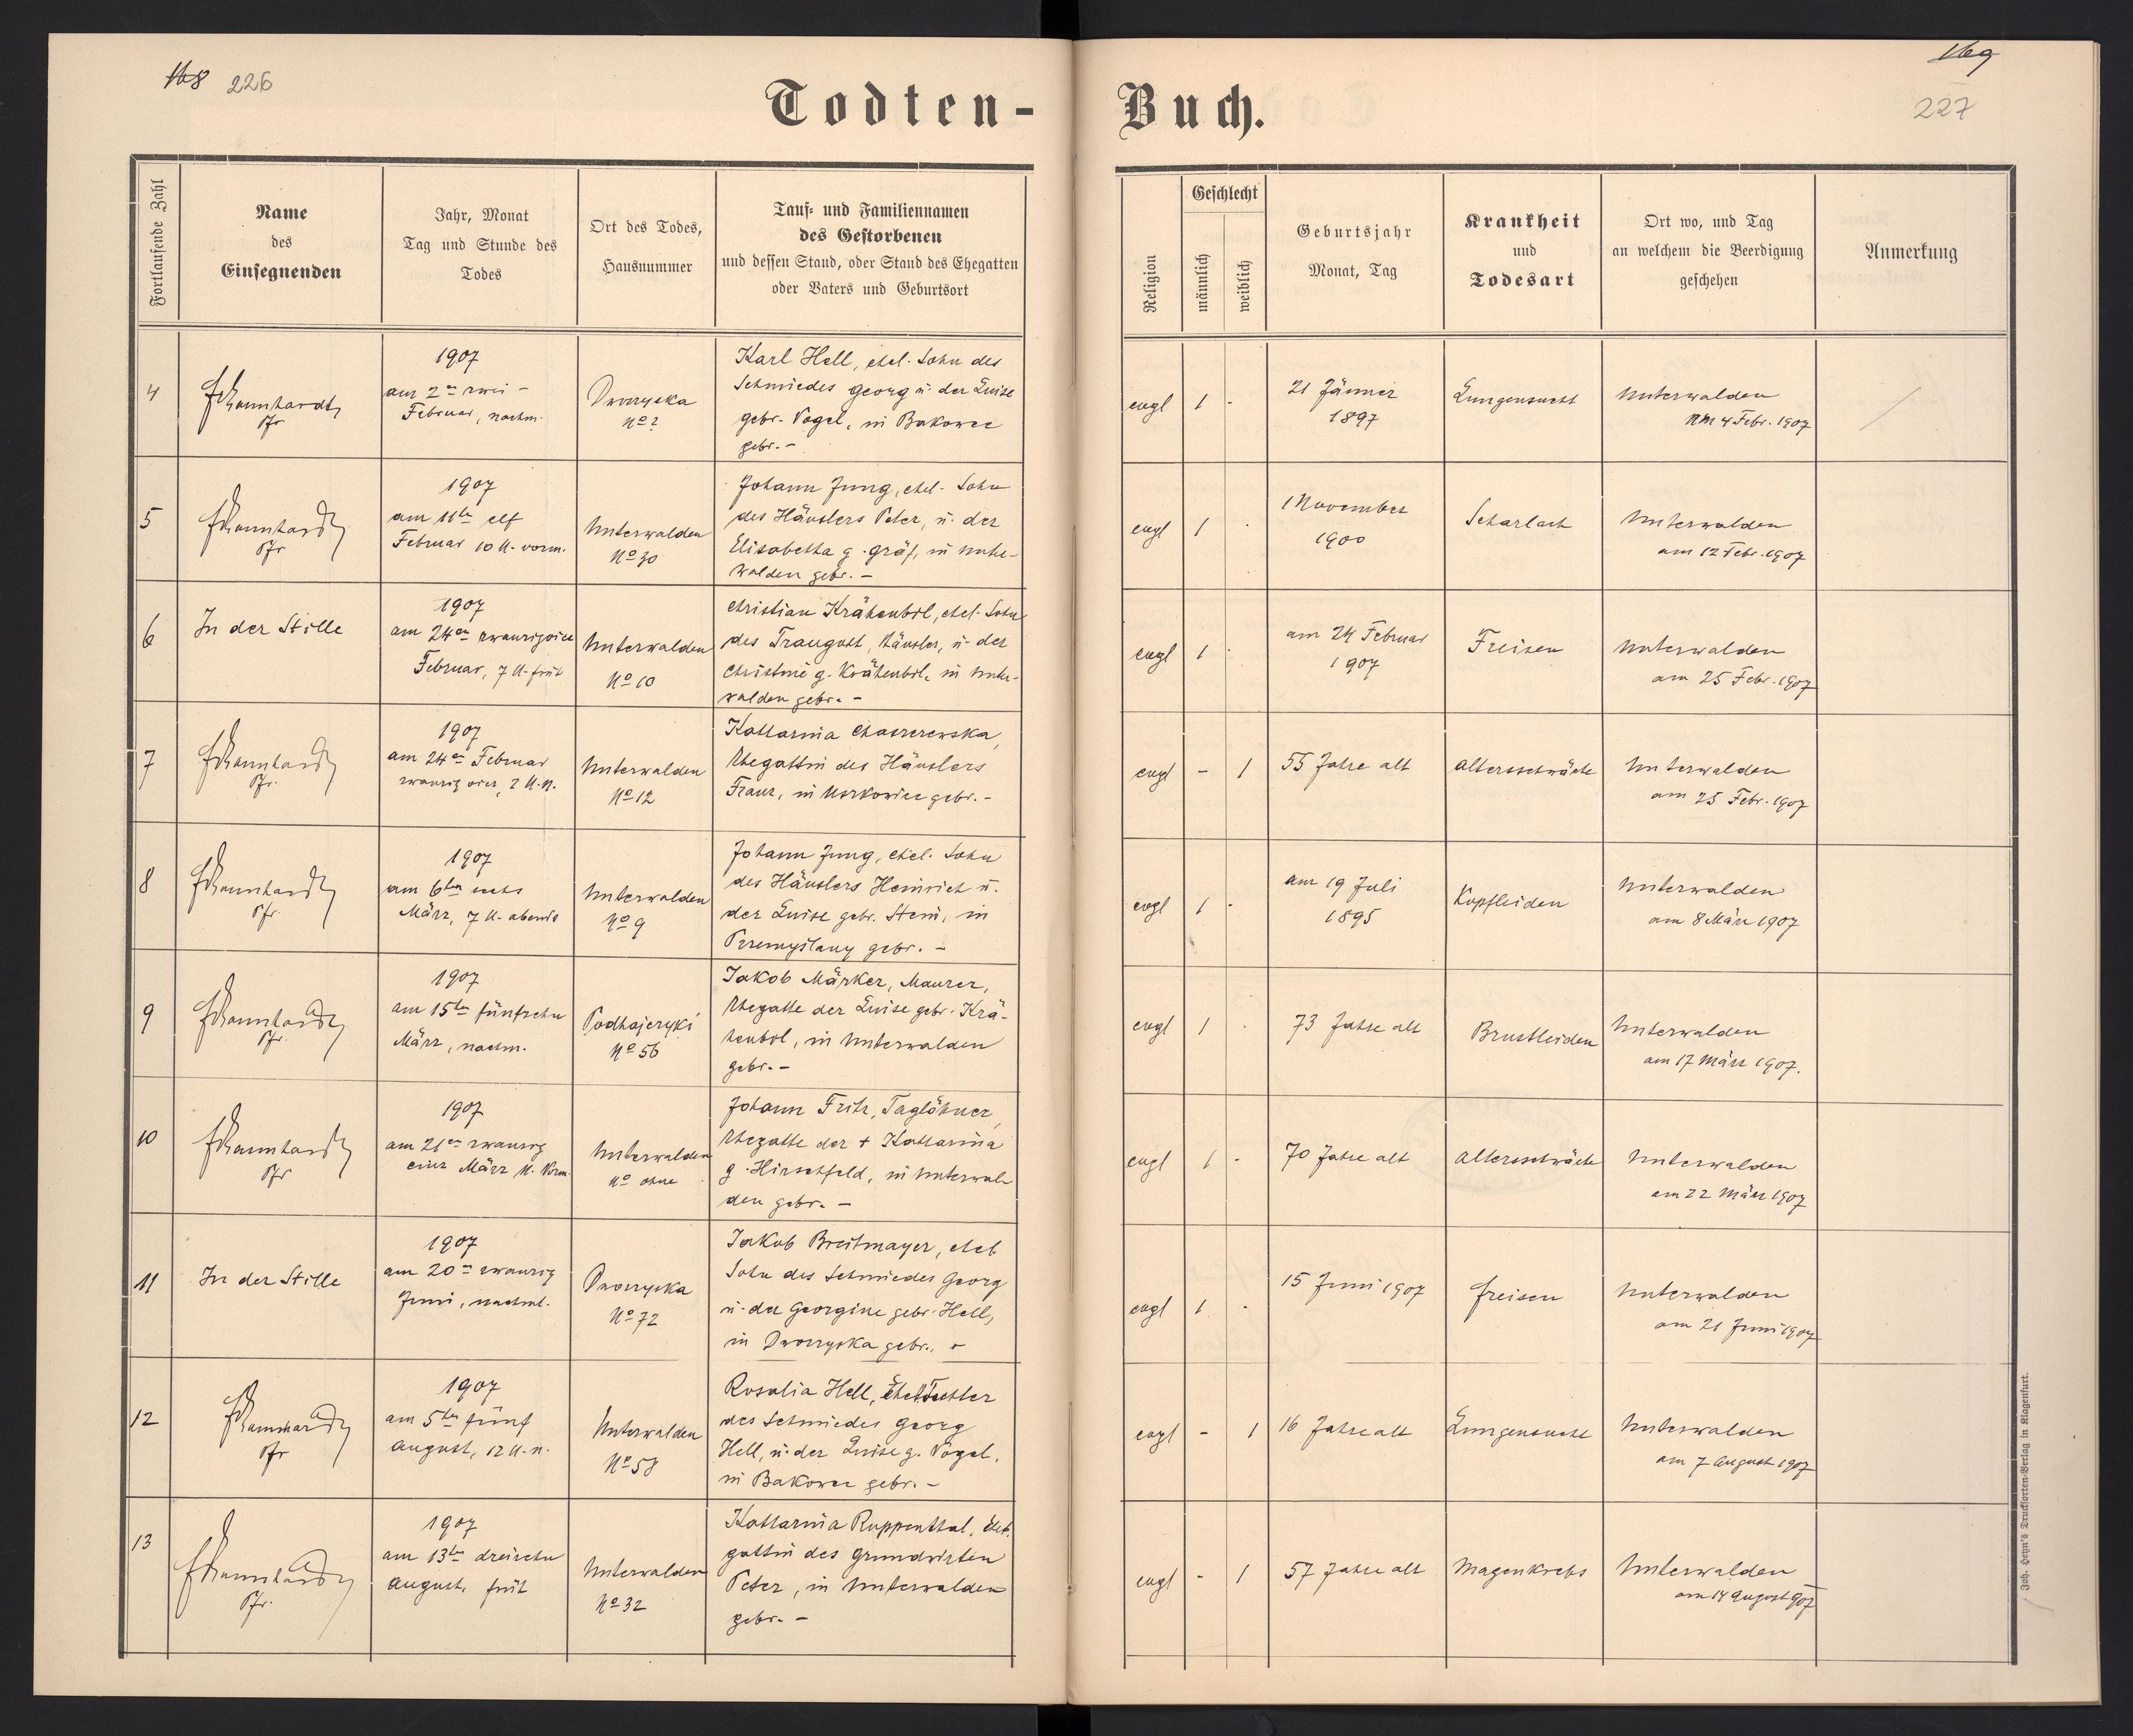 168 226
169
227
Todten- Buch.
Fortlaufende Zahl
Name
des
Einsegnenden
Jahr, Monat
Tag und Stunde des
Todes
Ort des Todes,
Hausnummer
Tauf- und Familiennamen
des Gestorbenen
und dessen Stand, oder Stand des Ehegatten
oder Vaters und Geburtsort
Religion
Geschlecht
männlich
weiblich
Geburtsjahr
Monat, Tag
Krankheit
und
Todesart
Ort wo, und Tag
an welchem die Beerdigung
geschehen
Anmerkung
4
Pfr
1907
am 2en zwei -
Februar, nachm.
Dworzyska
No ?
Karl Hell, ehel. Sohn des
Schmiedes Georg u. der Luise
gebr. Vogel, in Bakowce
gebr. -
evgl 1 -
21 Jänner
1897
Lungensucht
Unterwalden
am 4 Febr. 1907
5
Pfr
1907
am 11te elf
Februar 10 U. vorm.
Unterwalden
No 30
Johann Jung, ehel. Sohn
des Häuslers Peter, u. der
Elisabetha g. Gräf, in Unter-
walden gebr. -
evgl 1 -
1 November
1900
Scharlach
Unterwalden
am 12 Febr. 1907
6
In der Stille
1907
am 24en zwanzigvier
Februar, 7 U. früh
Unterwalden
No 10
Christian Krähenbil, ehel. Sohn
des Traugott, Häusler, u. der
Christine g. Krähenbil, in Unter-
walden gebr. -
evgl 1 -
am 24 Februar
1907
Freisen
Unterwalden
am 25 Febr. 1907
7
Pfr.
1907
am 24en Februar
zwanzig vier, 2 U. n.
Unterwalden
No 12
Katharina
Ehegattin des Häuslers
Franz, in gebr. -
evgl - 1
55 Jahre alt
Altersschwäche
Unterwalden
am 25 Febr. 1907
8
Pfr.
1907
am 6ten sechs
März, 7 U. abends
Unterwalden
No 9
Johann Jung, ehel. Sohn
des Häuslers Heinrich u.
der Luise gebr. Stein, in
Przemyślany gebr. -
evgl 1 -
am 19 Juli
1895
Kopfleiden
Unterwalden
am 8 März 1907
9
Pfr.
1907
am 15ten fünfzehn
März, nachm.
Podhajczyki
No 56
Jakob Märker, Maurer,
Ehegatte der Luise gebr. Krä-
henbil, in Unterwalden
gebr. -
evgl 1 -
73 Jahre alt
Brustleiden
Unterwalden
am 17 März 1907.
10
Pfr
1907
am 21en zwanzig
eins März U. Vorm.
Unterwalden
No ohne
Johann Fritz, Taglöhner,
Ehegatte der + Katharina
g. Hirschfeld, in Unterwal-
den gebr. -
evgl 1 -
70 Jahre alt
Altersschwäche
Unterwalden
am 22 März 1907
11
In der Stille
1907
am 20en zwanzig
Juni, nachm.
Dworzyska
No 72
Jakob Breitmayer, ehel
Sohn des Schmiedes Georg
u. der Georgine gebr. Hell,
in Dworzyska gebr. -
evgl 1 -
15 Juni 1907
Freisen
Unterwalden
am 21 Juni 1907
12
Pfr
1907
am 5ten fünf
August, 12 U. n.
Unterwalden
No 58
Rosalia Hell, Ehel Tochter
des Schmiedes Georg
Hell, u. der Luise g. Vogel,
in Bakowce gebr. -
evgl - 1
16 Jahre alt
Lungensucht
Unterwalden
am 7 August 1907
13
Pfr.
1907
am 13ten dreizehn
August, früh
Unterwalden
No 32
Katharina Ruppenthal, Ehe-
gattin des Grundwirten
Peter, in Unterwalden
gebr. -
evgl - 1
57 Jahre alt
Magenkrebs
Unterwalden
am 14 August 907
Joh. Heyn's Drucksorten-Verlag in Klagenfurt.